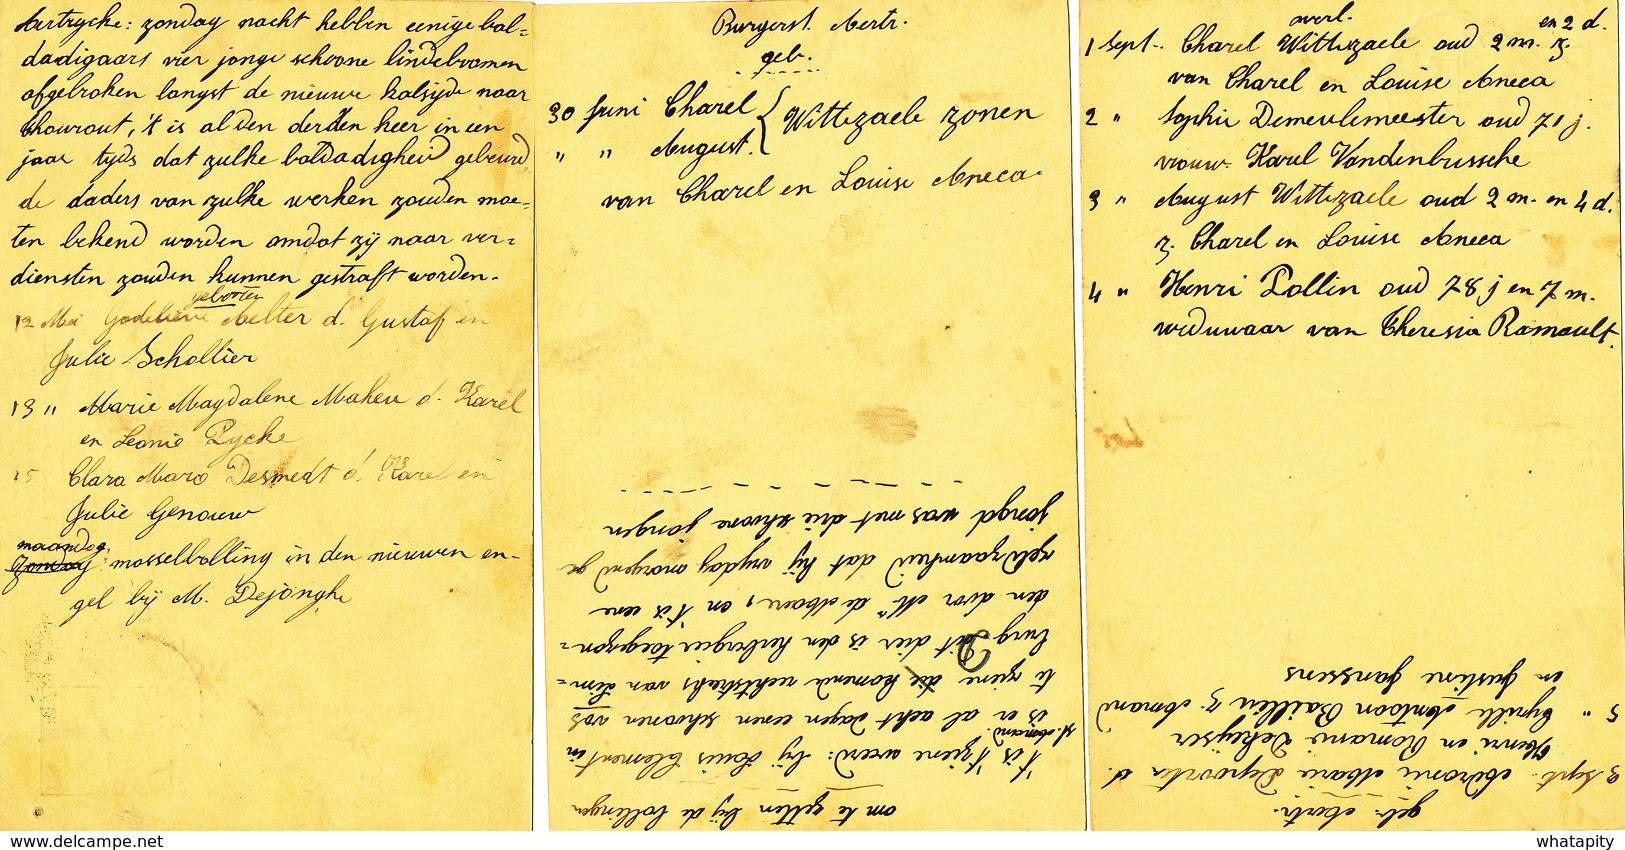 Aertrycke: zondag nacht hebben eenige bal=
dadigaars vier jonge schoone lindeboomen
afgebroken langst de nieuwe kalsijde naar
Thourout, 't is al den derden keer in een
jaar tyds dat zulke baldadigheid gebeurd,
de daders van zulke werken zouden moe=
ten bekend worden omdat zij naar ver=
diensten zouden kunnen gestraft worden.
geboorten
12 Mei Godelieve Aelter d. Gustaf en
Julie Schollier
13 " Marie Magdalene Maheu d. Karel
en Leonie Pycke
15 Clara Maro Desmedt d. Karel en
Julie Genouw
maandag
zondag: mosselbolling in den nieuwen en-
gel bij M. Dejonghe
Burgerst. Aertr.
geb.
30 Juni Charel { Wittezaele zonen
" " August.
van Charel en Louise Aneca.
om te zetten bij de bollingen
't is 't ziene weerd: bij Louis Clement in
st. Amand.
is er al acht dagen eenen schoonen vos
te ziene die komende rechtstreeks van Lim=
burg Dit dier is den herbergier toegezon=
den door Mr de Maere, en 't is eene
zeldzaamheid dat hij vrydag morgend ge
jongd was met drie schoone jongen
overl.
en 2 d.
1 Sept. Charel Wittezaele oud 2 m. z.
van Charel en Louise Aneca
2 " Sophie Demeulemeester oud 71 j.
vrouw. Karel Vandenbussche
3 " August Wittezaele oud 2 m. en 4 d.
z. Charel en Louise Aneca
4 " Henri Pollin oud 78 j en 7 m.
weduwaar van Theresia Ramault.
geb. Aertr.
3 Sept. Marie d.
Henri en Romanie Dekeyser
5 " Cyrille Antoon Baillieu z. Amand
en Justine Janssens
whatapity